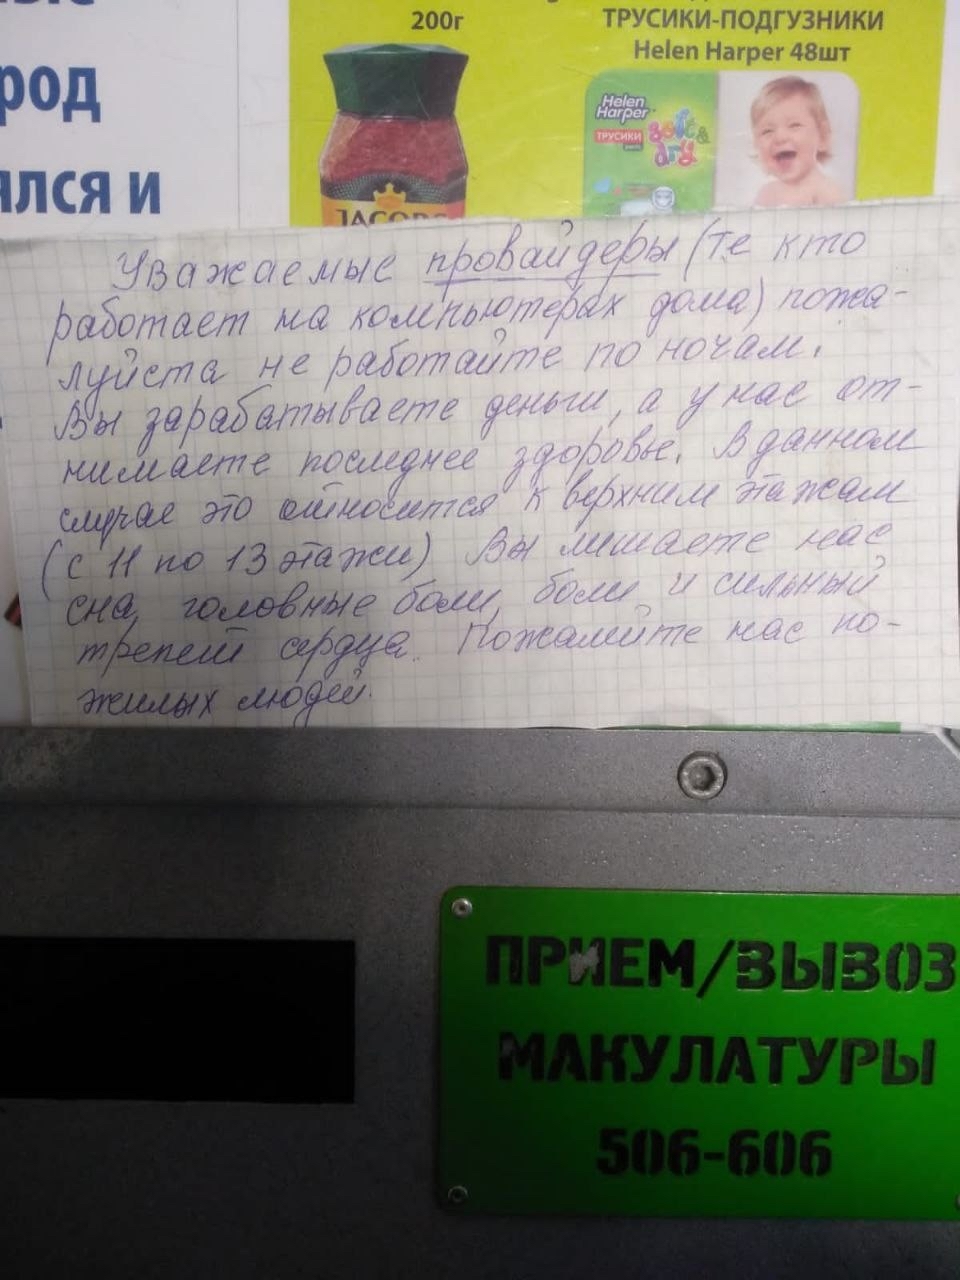 200г
ТРУСИКИ-ПОДГУЗНИКИ
Helen Harper 48шт
род
ялся и
Helen
Harper
ТРУСИКИ
soft &
dry
JACOBS
Уважаемые провайдеры (те кто
работает на компьютерах дома) пожа-
луйста не работайте по ночам.
Вы зарабатываете деньги, а у нас от-
нимаете последнее здоровье. В данном
случае это относится к верхним этажам
(с 11 по 13 этажи) Вы лишаете нас
сна, головные боли, боли и сильный
трепет сердца. Пожалейте нас по-
жилых людей.
ПРИЕМ/ВЫВОЗ
МАКУЛАТУРЫ
506-606